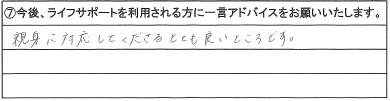 ⑦今後、ライフサポートを利用される方に一言アドバイスをお願いいたします。
親身に対応してくださるとても良いところです。